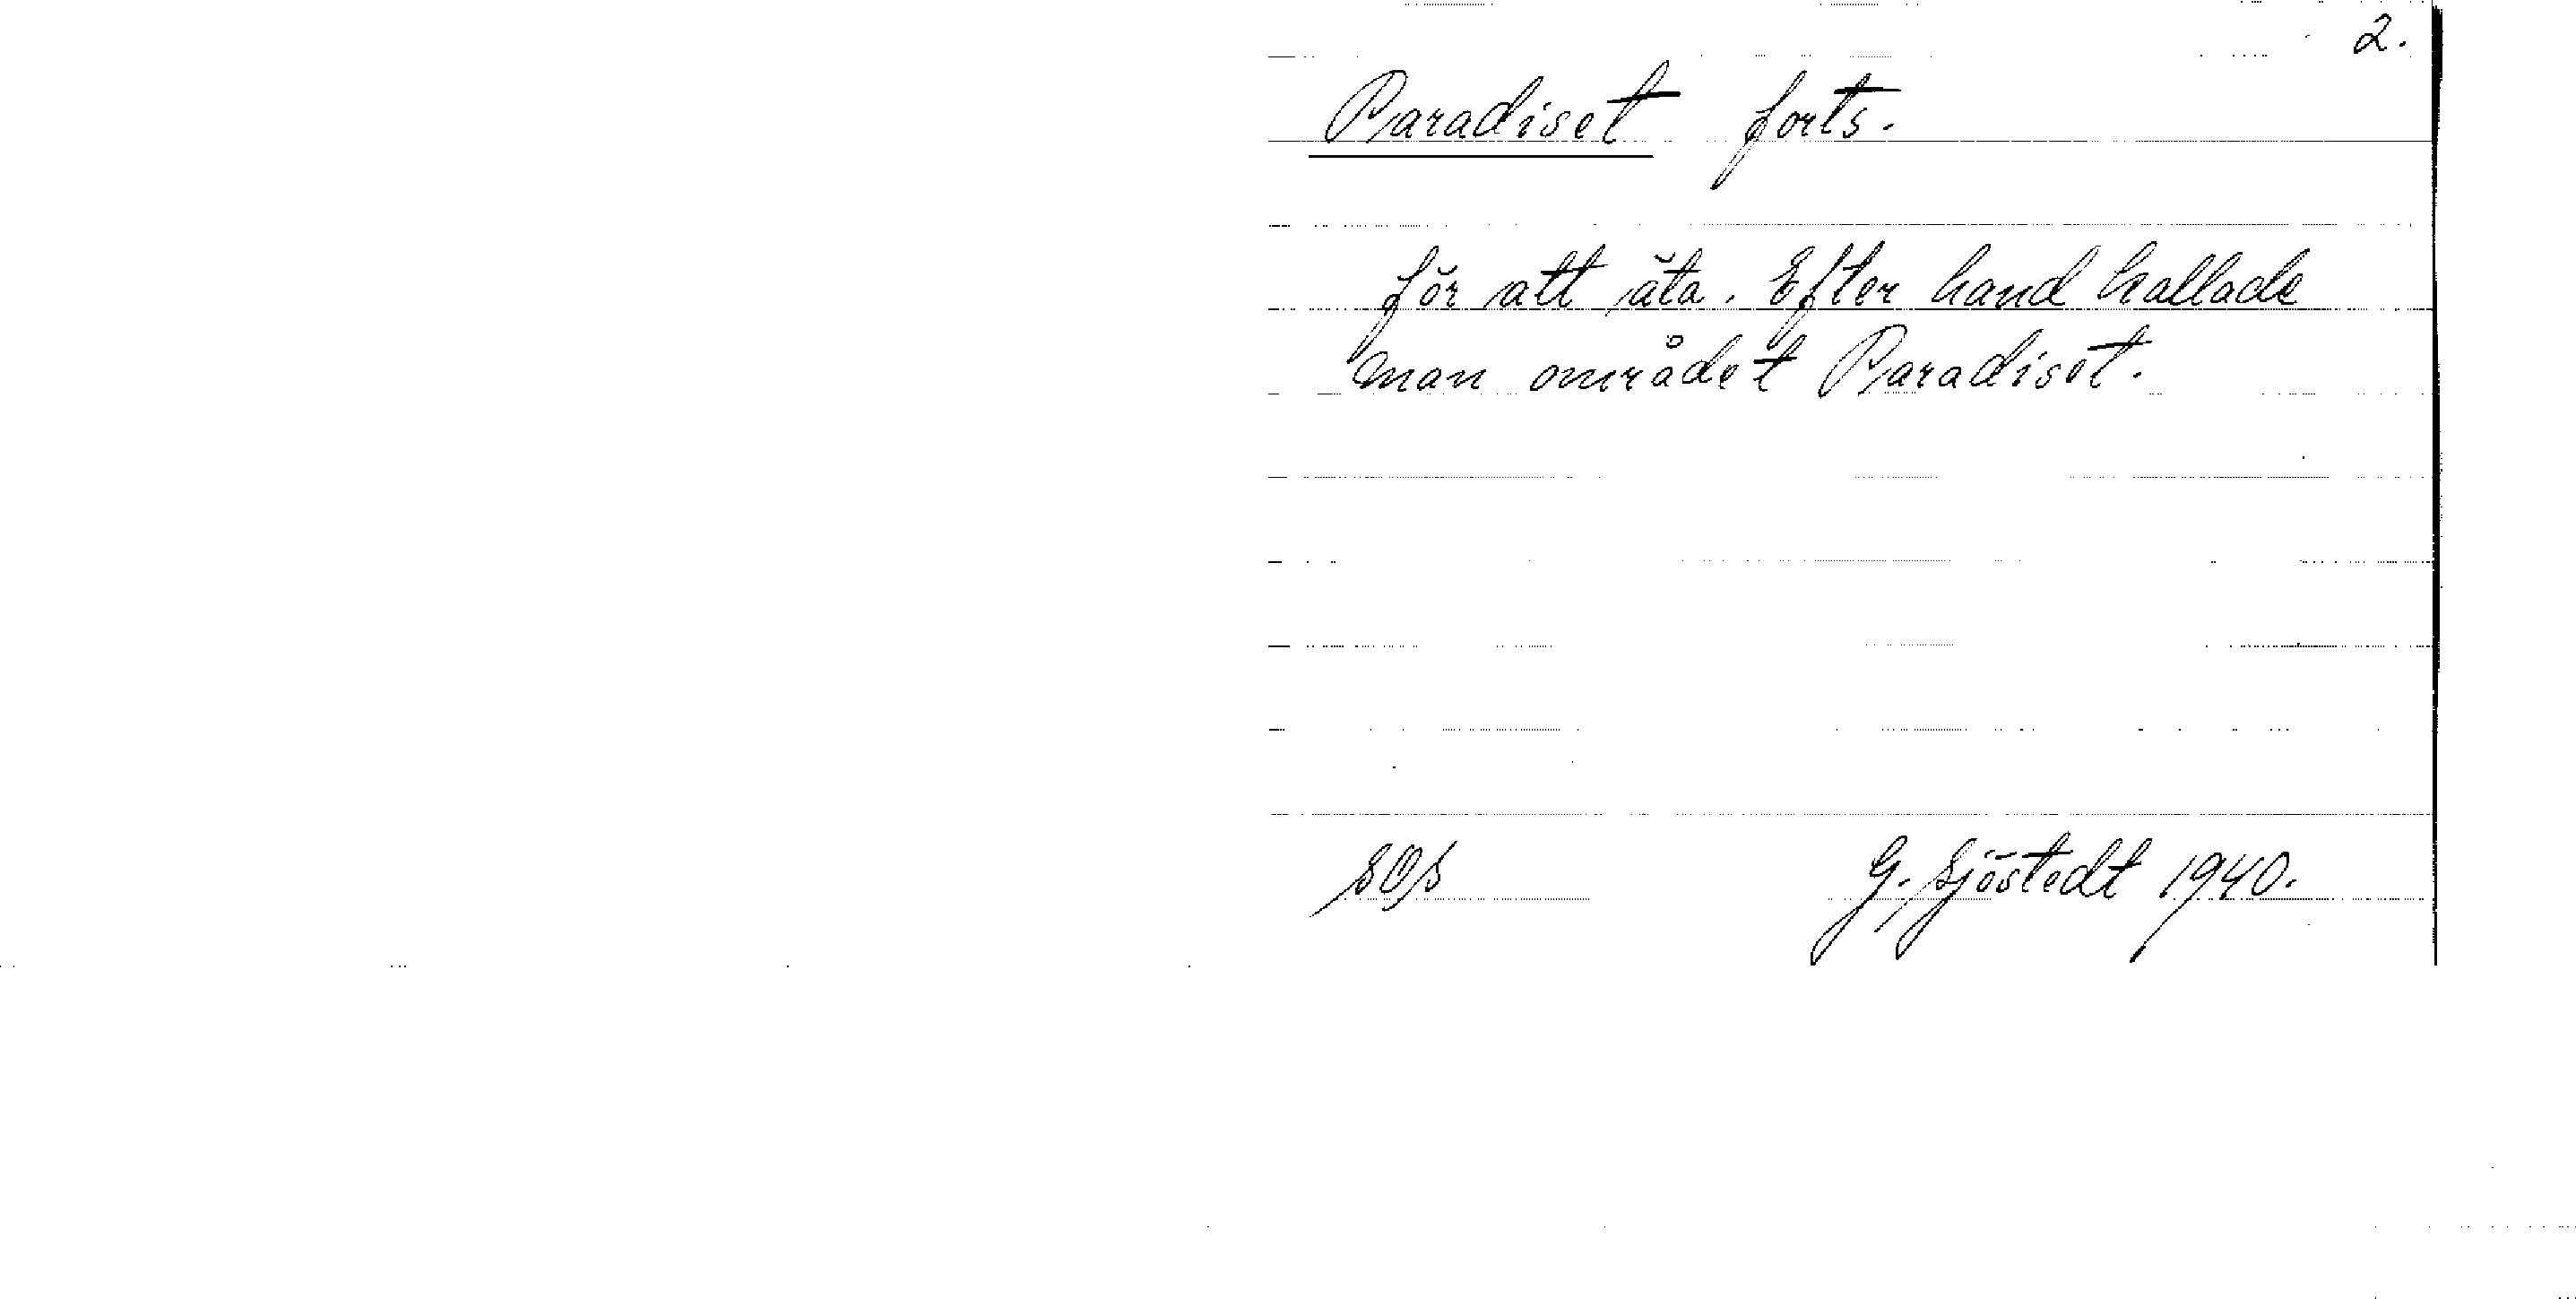 2.
Paradiset forts.
för att äta. Efter hand kallade
man området Paradiset.
SOS G. Sjöstedt 1940.